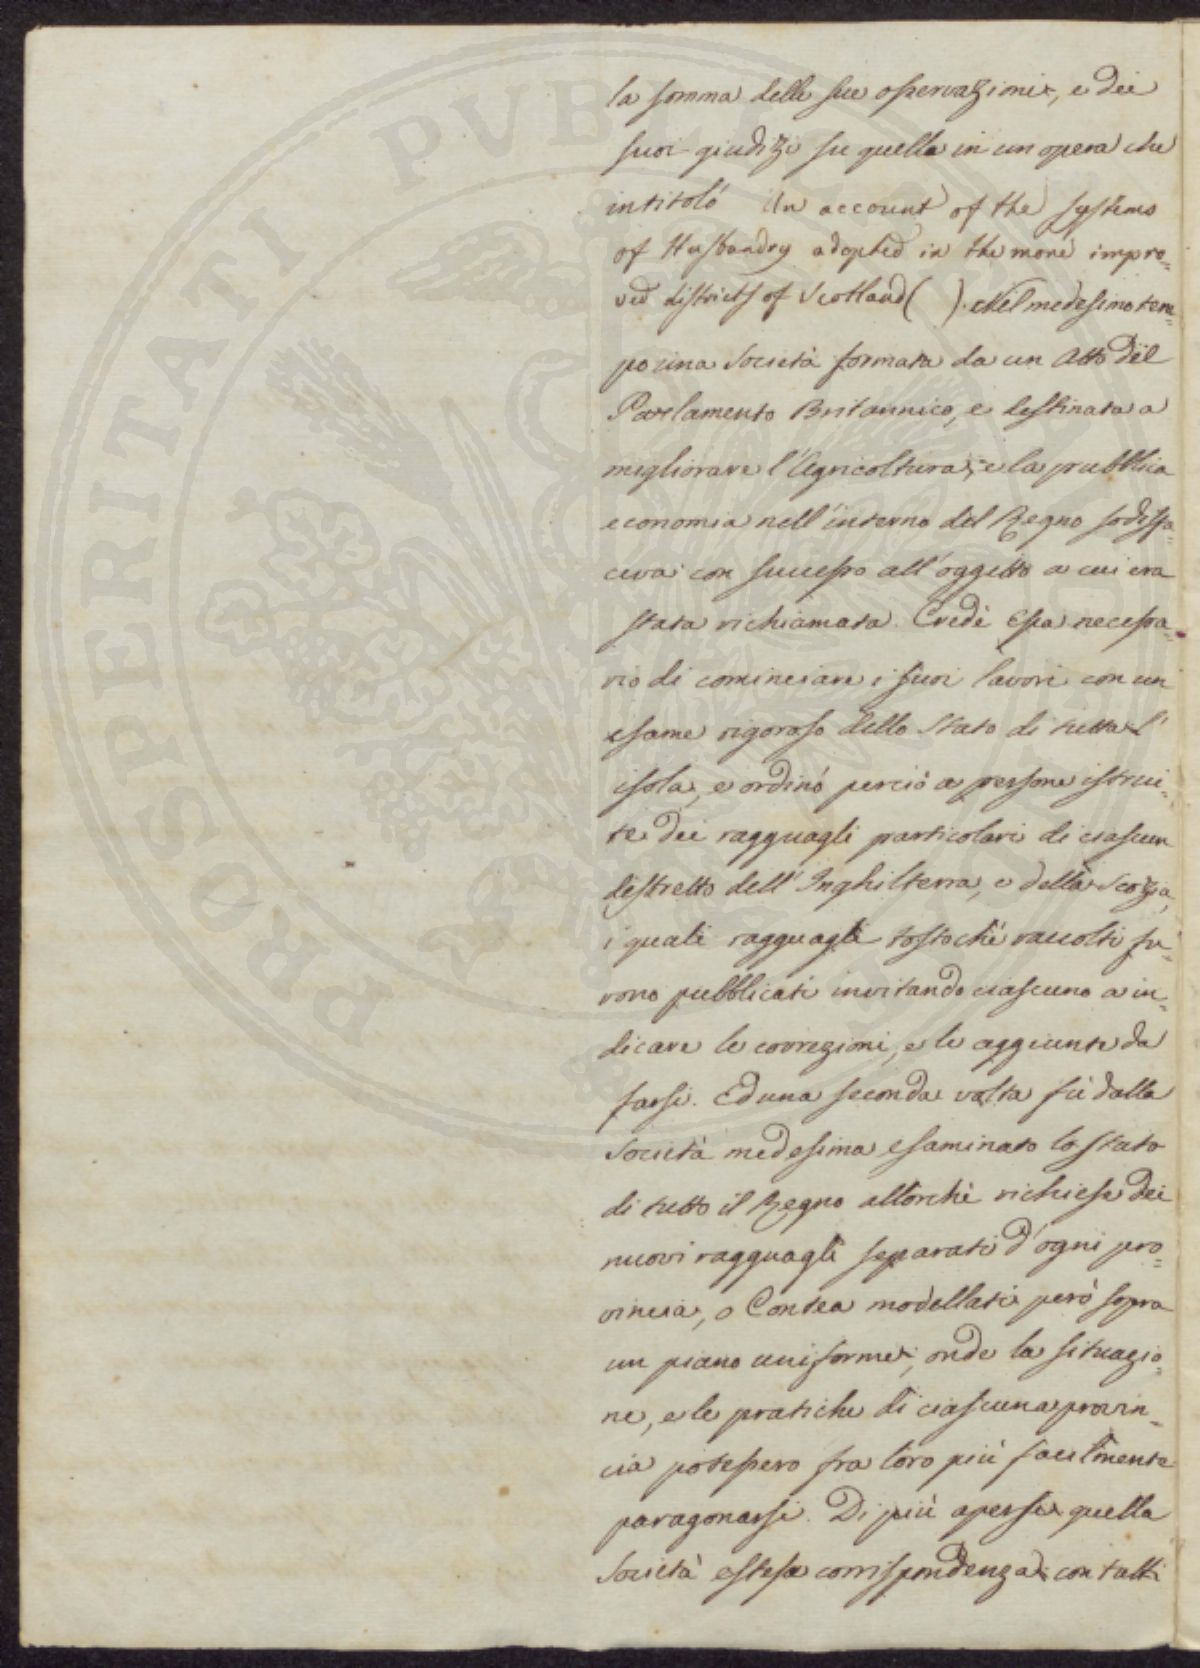 la somma delle sue osservazioni, e dei
suoi giudizi su quella in un opera che
intitoló An account of the systems
of Husbandry adopted in the more impro=
ved districts of Scotland ( ). Nel medesimo tem=
po una Società formata da un Atto del
Parlamento Britannico, e destinata a
migliorare l'Agricoltura, e la pubblica
economia nell'interno del Regno sodisfa=
ceva con successo all'oggetto a cui era
stata richiamata. Credè Essa necessa=
rio di cominciare i suoi lavori con un
esame rigoroso dello Stato di tutta l'
isola, e ordinó perciò a persone istrui=
te dei ragguagli particolari di ciascun
distretto dell'Inghilterra, e della Scozia,
i quali ragguagli tostochè raccolti fu=
rono pubblicati invitando ciascuno a in=
dicare le correzioni, e le aggiunte da
farsi. Ed una seconda volta fù dalla
Società medesima esaminato lo stato
di tutto il Regno allorchè richiese dei
nuovi ragguagli separati d'ogni pro=
vincia, o Contea modellati però sopra
un piano uniforme, onde la situazio=
ne, e le pratiche di ciascuna provin=
cia potessero fra loro più facilmente
paragonarsi. Di più aperse quella
Società estesa corrispondenza con tutti
PROSPERITATI PUBLICAE